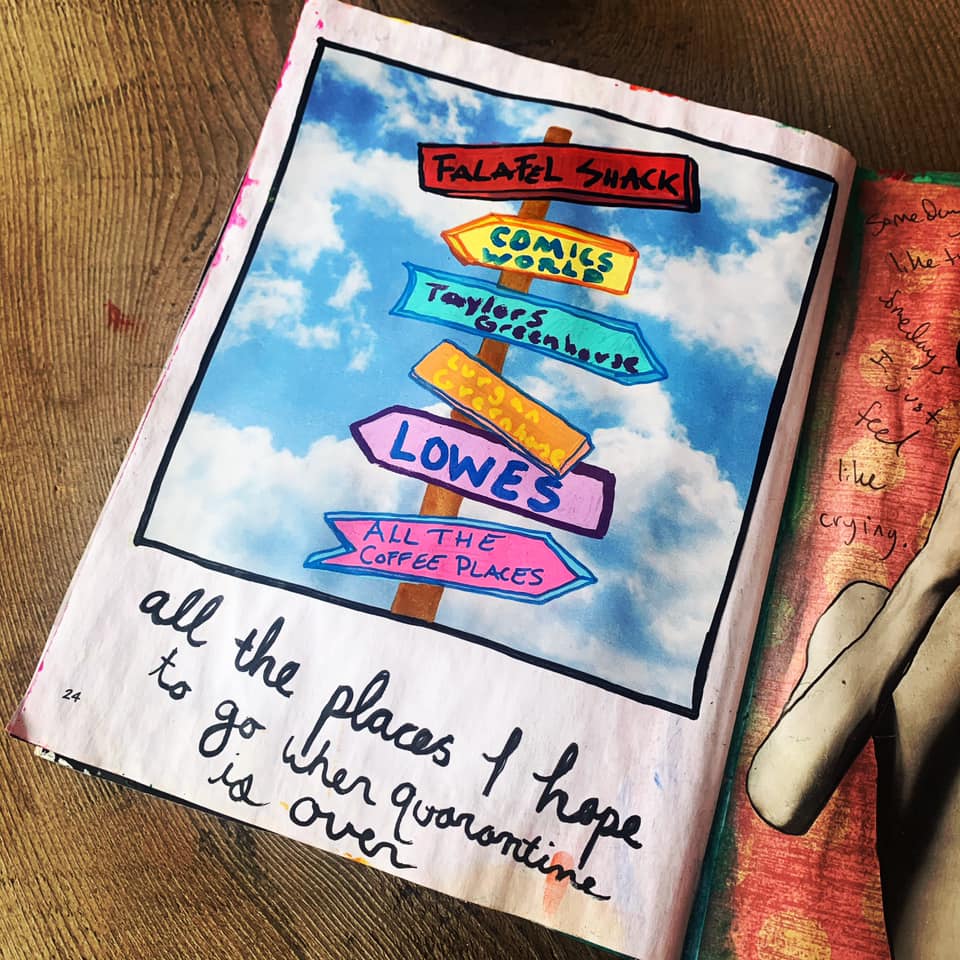 FALAFEL SHACK
COMICS
WORLD
Taylors
Greenhouse
Lurgan
Greenhouse
LOWES
ALL THE
COFFEE PLACES
all the places I hope
to go when quarantine
is over
24
Some Days
like
Somedays
I just
feel
like
crying.